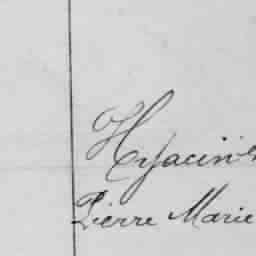 Hyacin
Pierre Marie